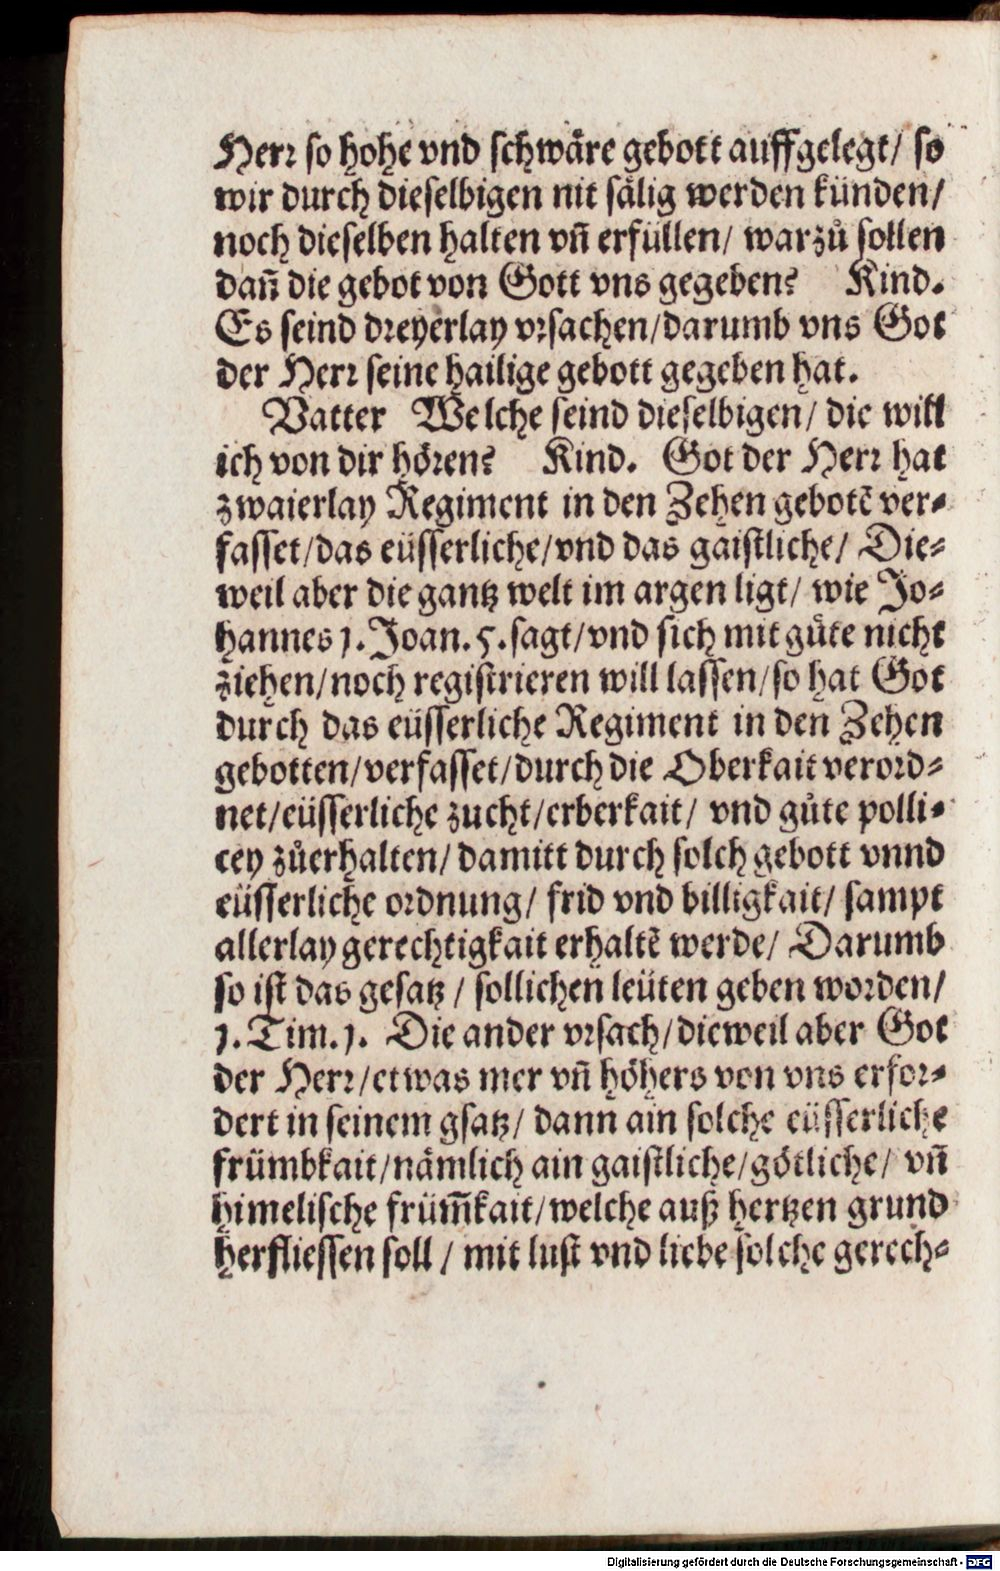 Herr so hohe vnd schwäre gebott auffgelegt/ so
wir durch dieselbigen nit sälig werden künden/
noch dieselben halten vñ erfüllen/ warzů sollen
dañ die gebot von Gott vns gegeben? Kind.
Es seind dreyerlay vrsachen/darumb vns Got
der Herr seine hailige gebott gegeben hat.
Vatter Welche seind dieselbigen/ die will
ich von dir hören? Kind. Got der Herr hat
zwaierlay Regiment in den Zehen gebotē ver-
fasset/das eüsserliche/vnd das gaistliche/ Die-
weil aber die gantz welt im argen ligt/ wie Jo-
hannes 1. Joan. 5. sagt/vnd sich mit güte nicht
ziehen/noch registrieren will lassen/so hat Got
durch das eüsserliche Regiment in den Zehen
gebotten/verfasset/durch die Oberkait verord-
net/eüsserliche zucht/erberkait/ vnd gůte polli-
cey zůerhalten/ damitt durch solch gebott vnnd
eüsserliche ordnung/ frid vnd billigkait/ sampt
allerlay gerechtigkait erhaltē werde/ Darumb
so ist das gesatz / sollichen leüten geben worden/
1. Tim. 1. Die ander vrsach/dieweil aber Got
der Herr/etwas mer vñ höhers von vns erfor-
dert in seinem gsatz/ dann ain solche eüsserliche
frümbkait/nämlich ain gaistliche/götliche/ vñ
himelische früm̄kait/welche auß hertzen grund
herfliessen soll / mit lust vnd liebe solche gerech-
Digitalisierung gefördert durch die Deutsche Forschungsgemeinschaft - DFG